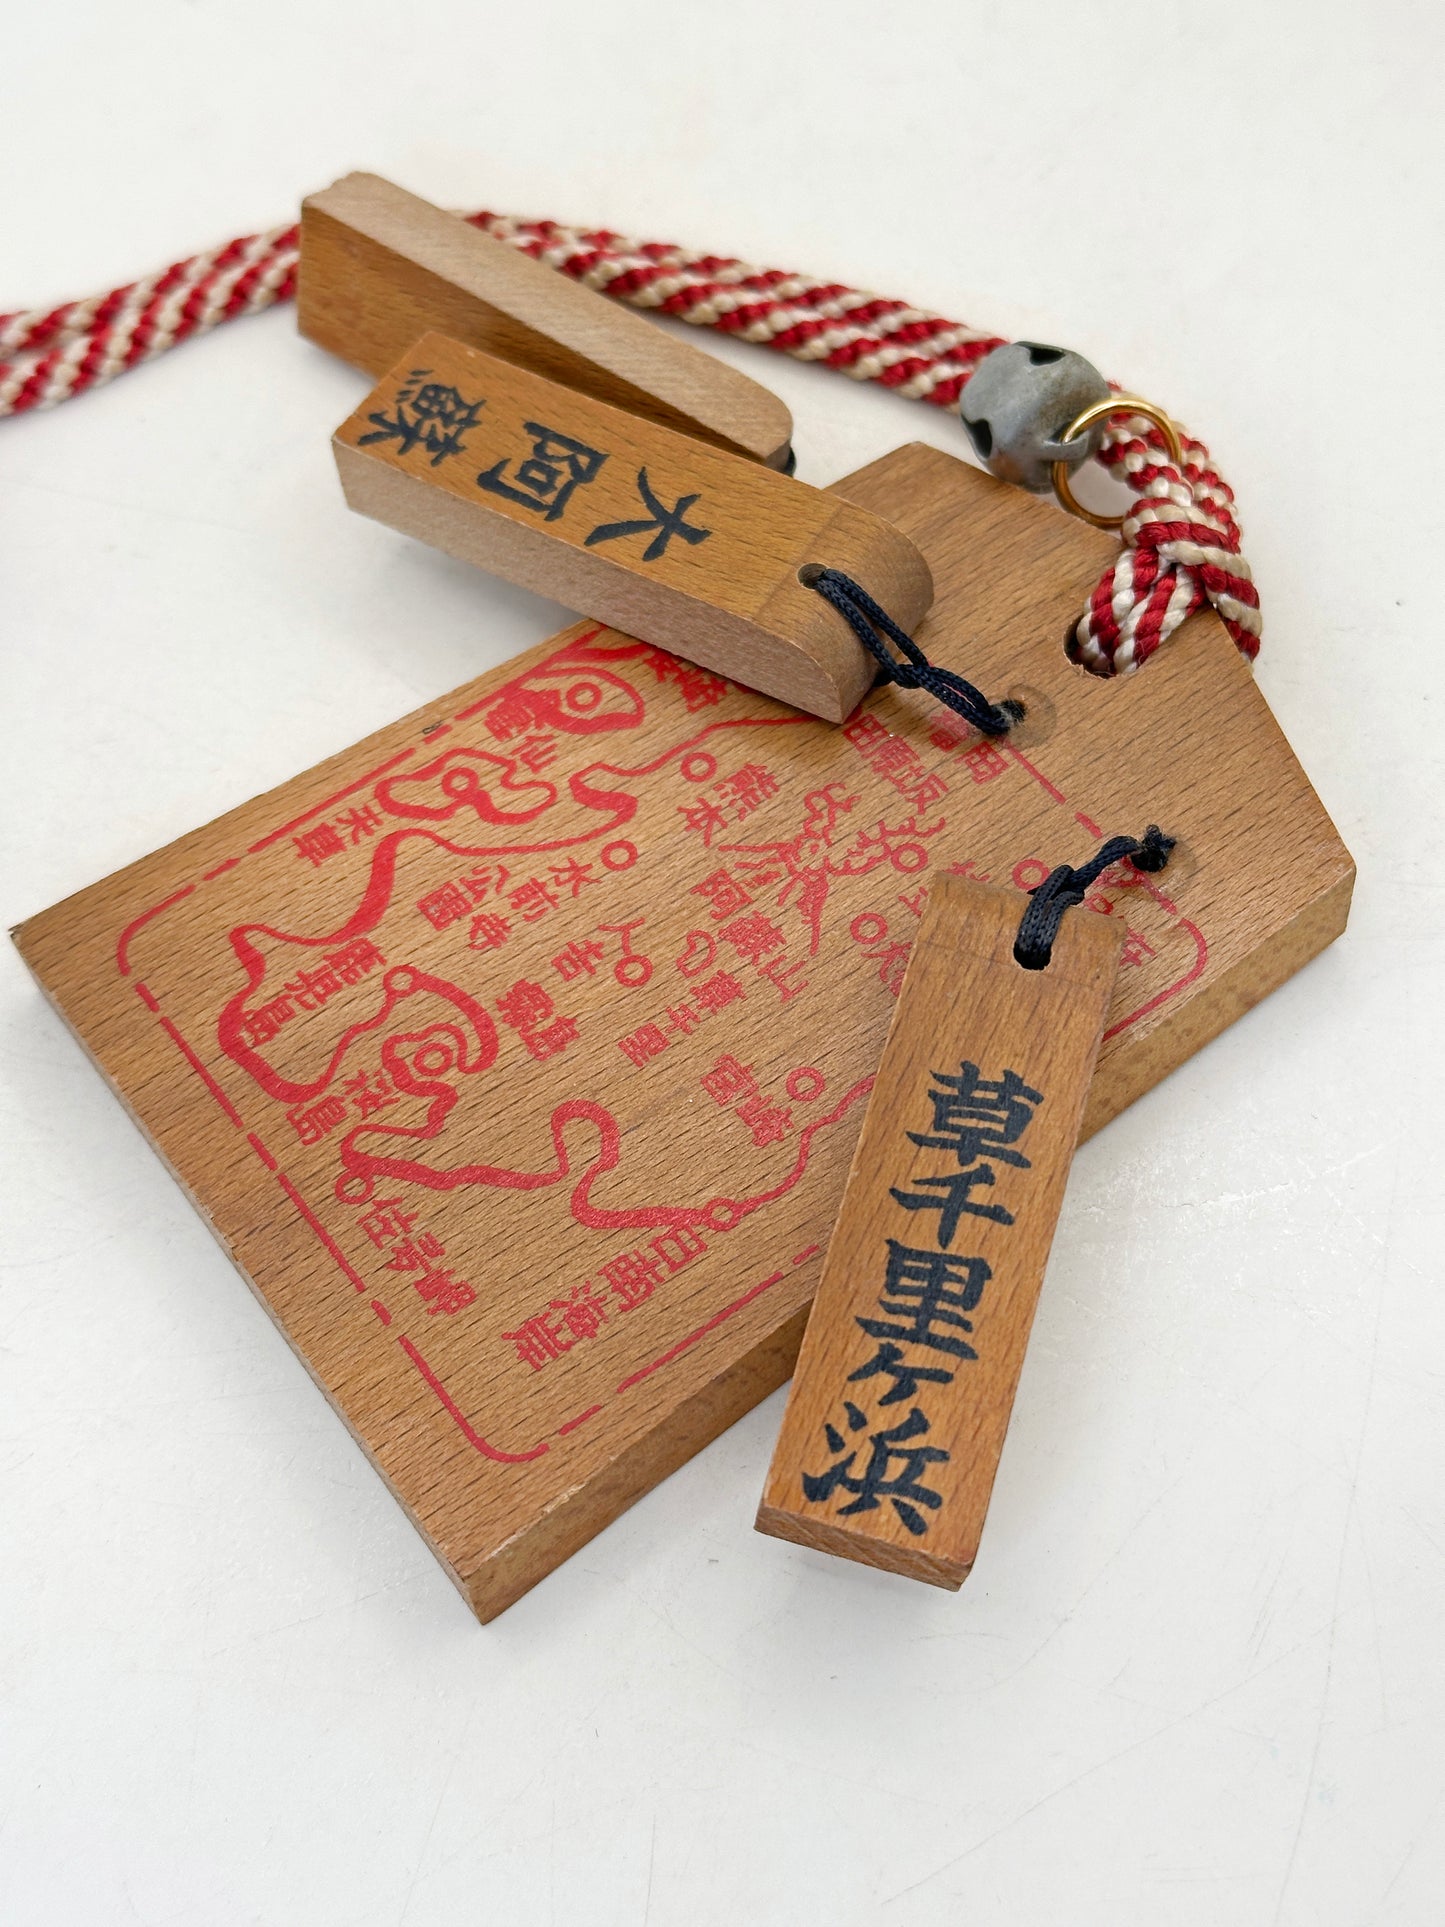 大阿蘇
草千里ヶ浜
雲仙
天草
熊本
田原坂
水前寺
公園
阿蘇山
草千里
人吉
霧島
宮崎
桜島
佐多岬
日南海岸